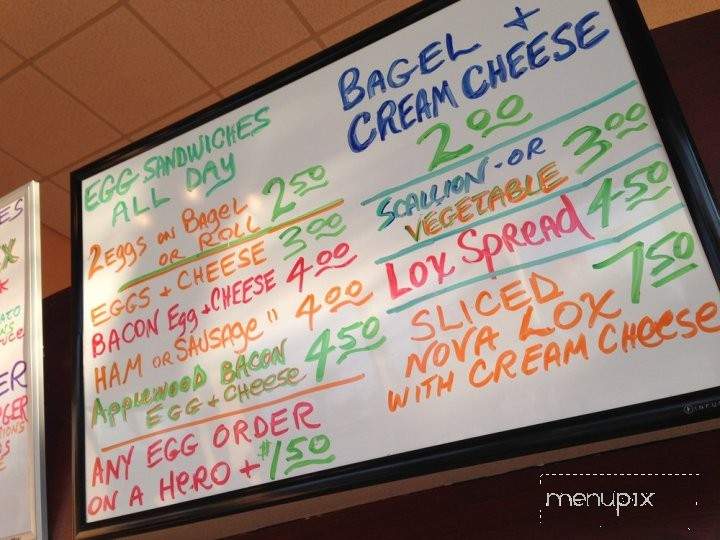 EGG SANDWICHES
ALL DAY
2 Eggs on Bagel
OR ROLL 2 50
EGGS + CHEESE 3 00
BACON Egg + CHEESE 4 00
HAM OR SAUSAGE " 4 00
Applewood BACON
EGG + CHEESE 4 50
ANY EGG ORDER
ON A HERO + $1 50
BAGEL +
CREAM CHEESE
2 00
SCALLION - OR
VEGETABLE 3 00
LOX SPREAD 4 50
SLICED
NOVA LOX 7 50
WITH CREAM CHEESE
menupix